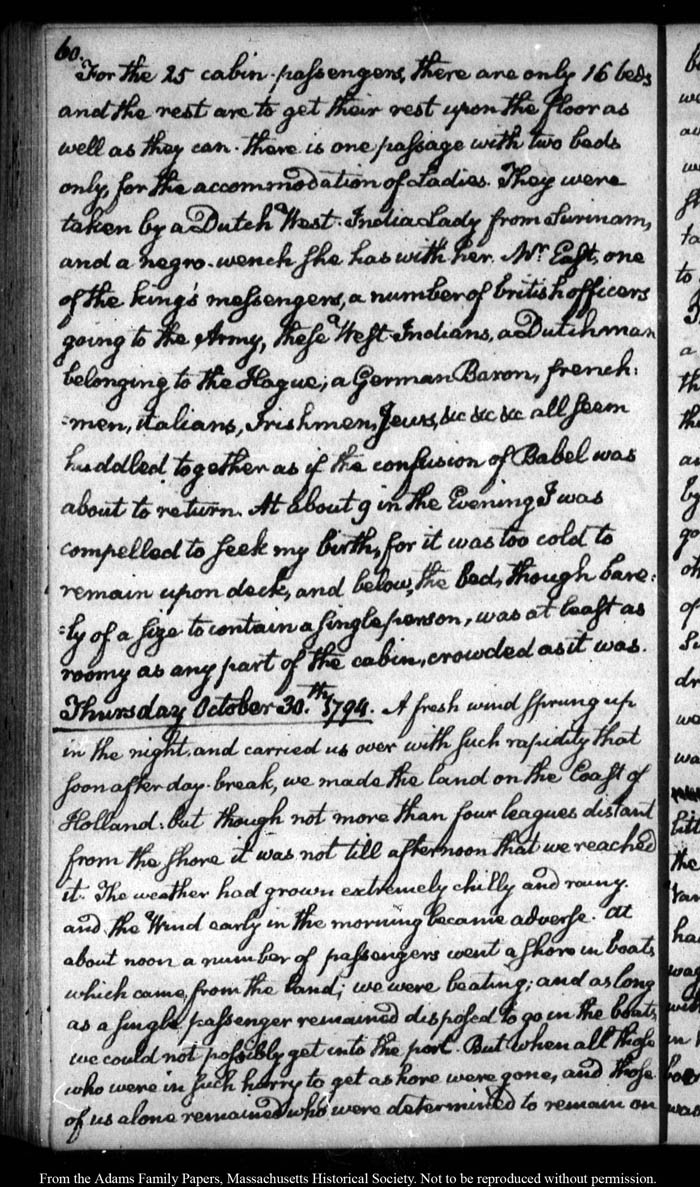 60.
For the 25 cabin passengers, there are only 16 beds
and the rest are to get their rest upon the floor as
well as they can. there is one passage with two beds
only, for the accommodation of Ladies. They were
taken by a Dutch West-India Lady from Surinam,
and a negro-wench she has with her. Mr. East, one
of the king's messengers, a number of british officers
going to the Army, these West-Indians, a Dutchman
belonging to the Hague; a German Baron, french:
=men, italians, Irishmen, Jews, &c &c &c all seem
huddled together as if the confusion of Babel was
about to return. At about 9 in the Evening I was
compelled to seek my birth, for it was too cold to
remain upon deck, and below, the bed, though bare:
=ly of a size to contain a single person, was at least as
roomy as any part of the cabin, crowded as it was.
Thursday October 30.th 1794. A fresh wind sprung up
in the night, and carried us over with such rapidity that
soon after day-break, we made the land on the Coast of
Holland. but though not more than four leagues distant
from the shore it was not till afternoon that we reached
it. The weather had grown extremely chilly and rainy.
and the Wind early in the morning became adverse. at
about noon a number of passengers went ashore in boats
which came from the land; we were beating; and as long
as a single passenger remained disposed to go in the boats,
we could not possibly get into the port. But when all those
who were in such hurry to get ashore were gone, and those
of us alone remained who were determined to remain on
From the Adams Family Papers, Massachusetts Historical Society. Not to be reproduced without permission.